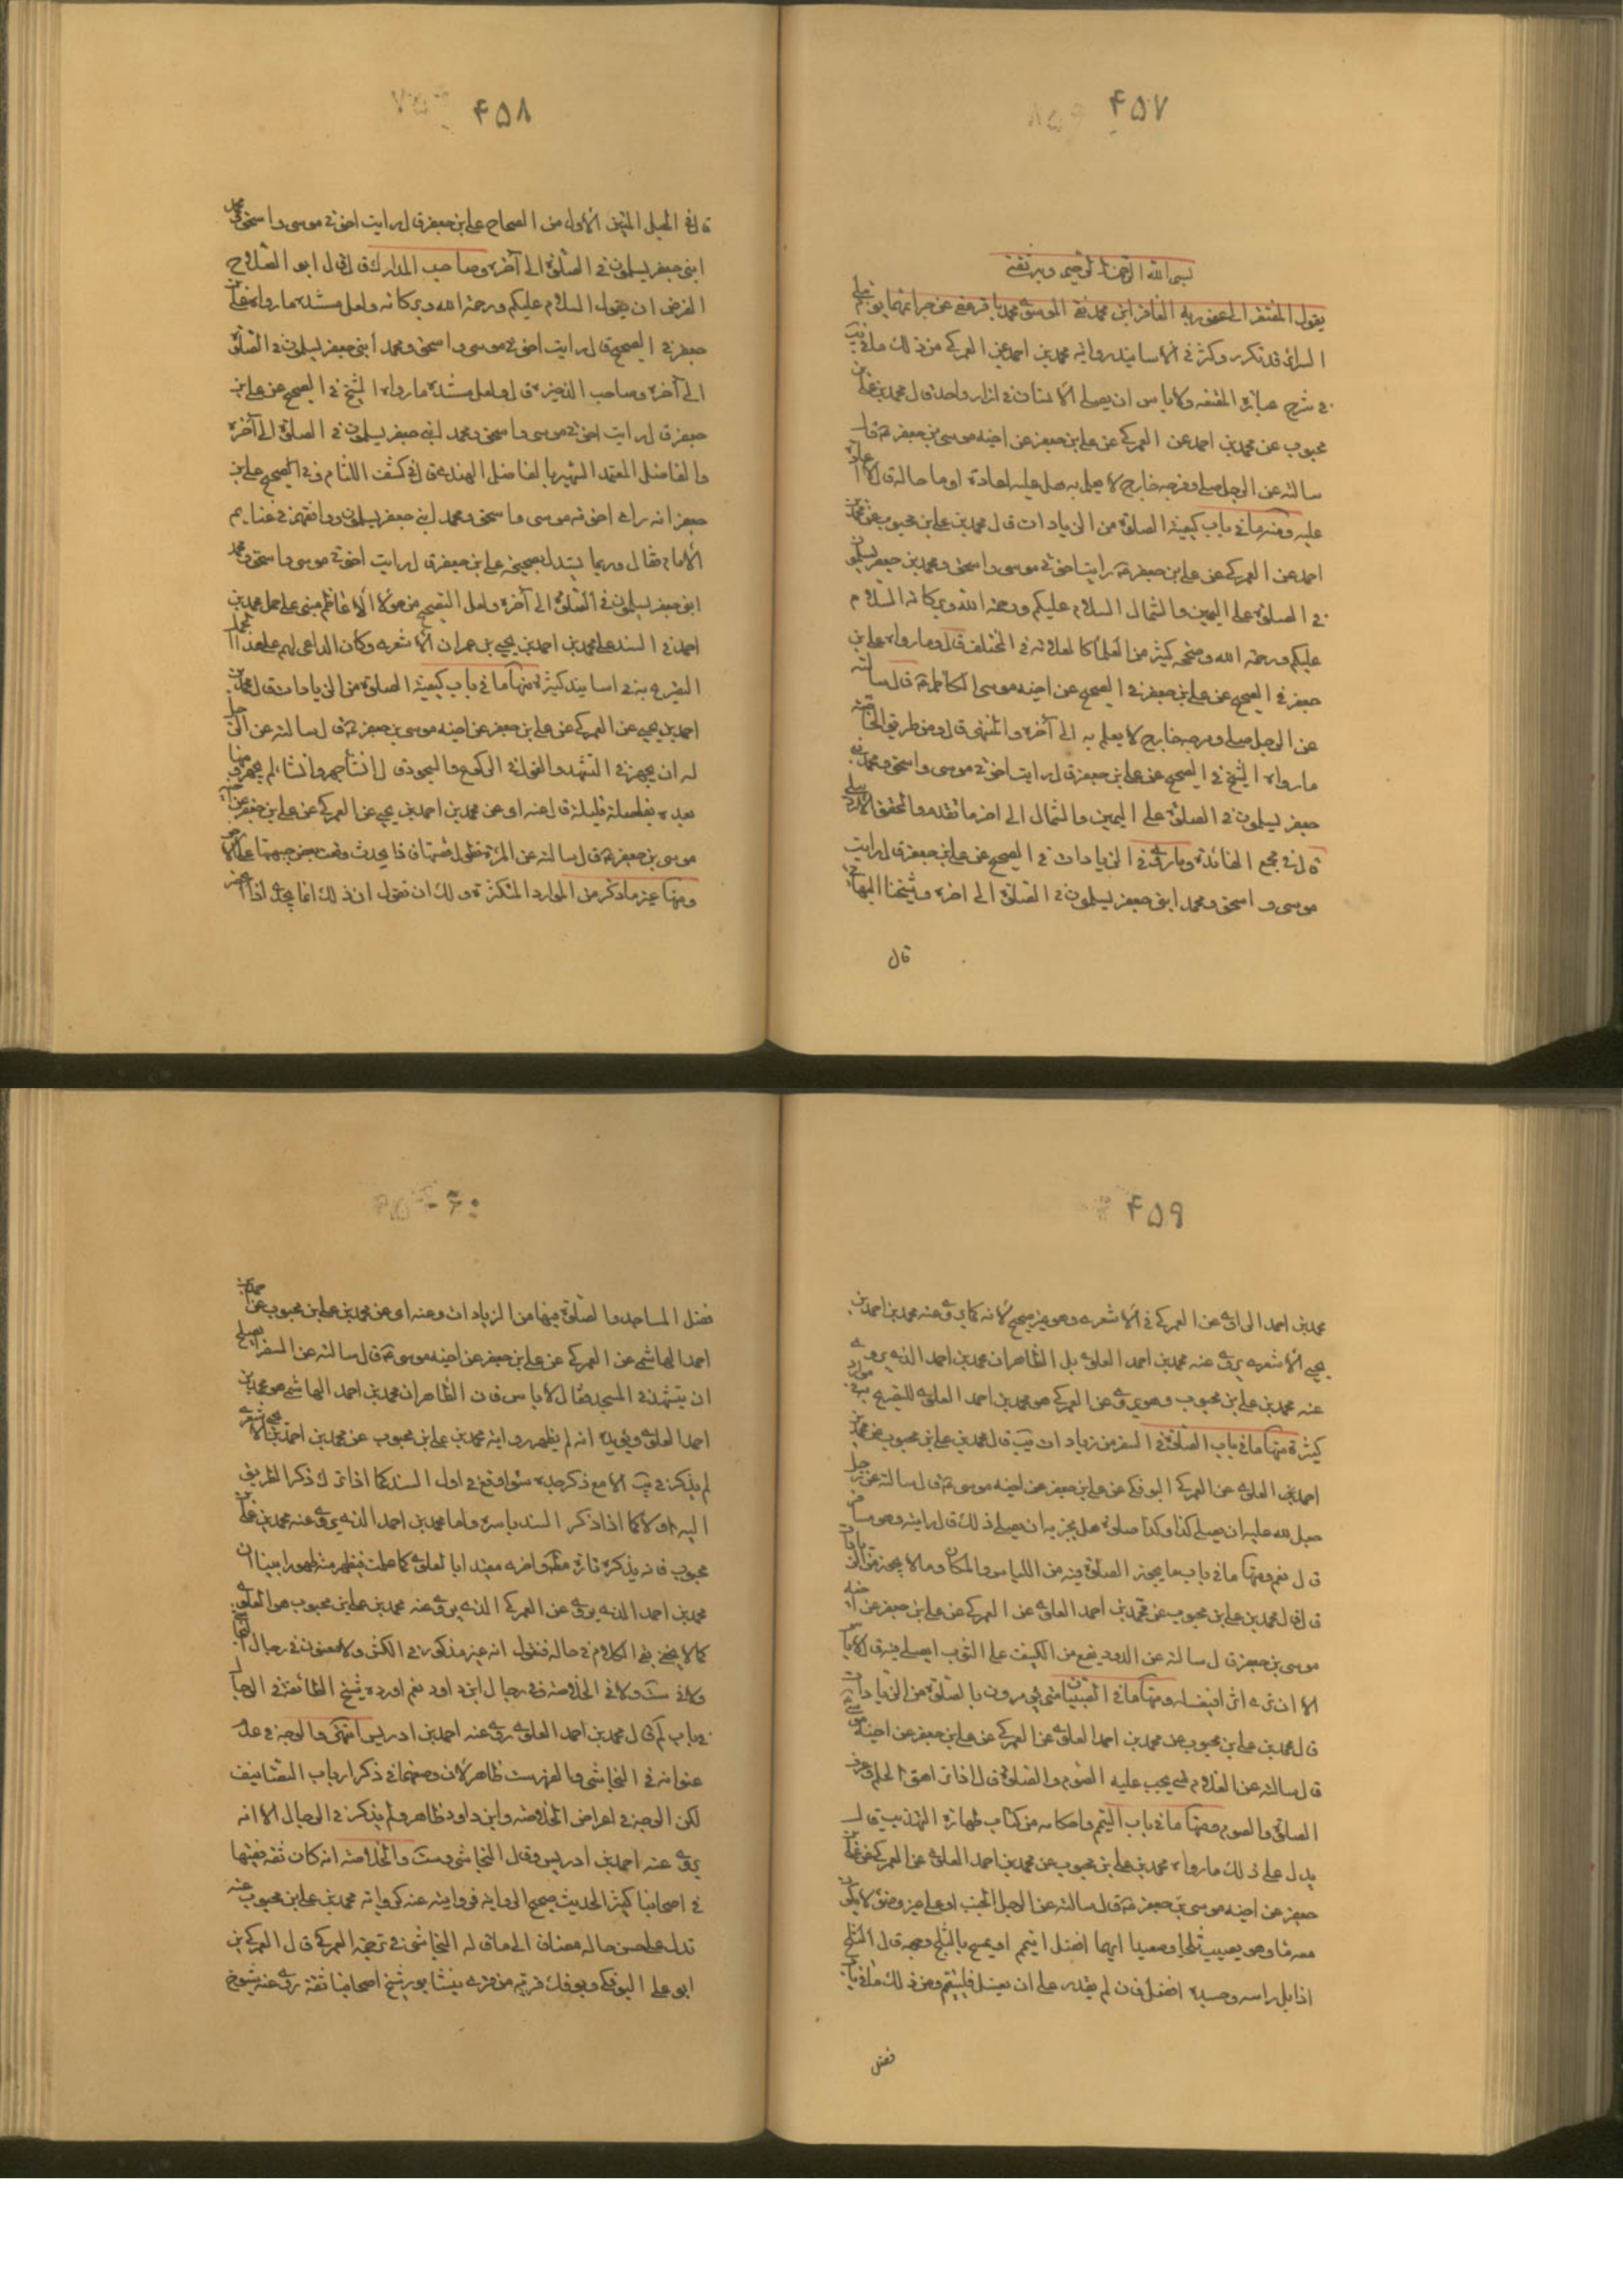 ۴۵۷
بسم الله الرحمن الرحيم وبه ثقتى
يقول المفتقر الى عفو ربه الغافر ابن محمد نقى الموسوى محمد باقر عفى عن جرائمهما يوم تبلى
السرائر قد تكرر وكثر فى الاسانيد رواية محمد بن احمد عن العمركى من ذلك ما فى يب
فى شرح عبارة المقنعه ولا باس ان يصلى الانسان فى ازار واحد قال محمد بن على بن
محبوب عن محمد بن احمد عن العمركى عن على بن جعفر عن اخيه موسى بن جعفر ع قال
سالته عن الرجل صلى وفرجه خارج لا يعلم به هل عليه اعادة او ما حاله قال لا اعادة
عليه ومنه ما فى باب كيفية الصلوة من الزيادات قال محمد بن على بن محبوب عن محمد بن
احمد عن العمركى عن على بن جعفر ع رايت اخوتى موسى واسحق ومحمد بن جعفر يسلمون
فى الصلوة على اليمين والشمال السلام عليكم ورحمة الله وبركاته السلام
عليكم ورحمة الله وصححه كثير من العلماء كالعلامة فى المختلف قال وما رواه على بن
جعفر فى الصحيح عن على بن جعفر فى الصحيح عن اخيه موسى الكاظم ع قال سالته
عن الرجل صلى وفرجه خارج لا يعلم به الى آخره والمنتهى قال ومن طريق الخاصة
ما رواه الشيخ فى الصحيح عن على بن جعفر قال رايت اخوتى موسى واسحق ومحمد بن
جعفر يسلمون فى الصلوة على اليمين والشمال الى اخر ما تقدم والمحقق الاردبيلى
قال فى مجمع الفائدة وما روى فى الزيادات فى الصحيح عن على بن جعفر قال رايت
موسى واسحق ومحمد ابنى جعفر يسلمون فى الصلوة الى اخره وشيخنا البهائى
قال
۴۵۸
قال فى الحبل المتين الاول من الصحاح على بن جعفر قال رايت اخوتى موسى واسحق ومحمد
ابنى جعفر يسلمون فى الصلوة الى آخره وصاحب المدارك قال قال ابو الصلاح
الفرض ان يقول السلام عليكم ورحمة الله وبركاته ولعل مستنده ما رواه على بن
جعفر فى الصحيح قال رايت اخوتى موسى واسحق ومحمد ابنى جعفر يسلمون فى الصلوة
الى آخره وصاحب الذخيرة قال ولعل مستنده ما رواه الشيخ فى الصحيح عن على بن
جعفر قال رايت اخوتى موسى واسحق ومحمد ابنى جعفر يسلمون فى الصلوة الى آخره
والفاضل المعتمد الشهير بالفاضل الهندى قال فى كشف اللثام وفى الصحيح على بن
جعفر انه راى اخوته موسى واسحق ومحمد ابنى جعفر يسلمون ووافقهم فى غنايم
الامام فقال وربما يستدل بصحيحة على بن جعفر قال رايت اخوتى موسى واسحق ومحمد
ابنى جعفر يسلمون فى الصلوة الى آخره ولعل التصحيح من هؤلاء الاعاظم مبنى على حمل محمد بن
احمد فى السند على محمد بن احمد بن يحيى بن عمران الاشعرى وكان الداعى لهم على هذا الحمل
التصريح به فى اسانيد كثيرة منها ما فى باب كيفية الصلوة من الزيادات قال محمد بن
احمد بن يحيى عن العمركى عن على بن جعفر عن اخيه موسى بن جعفر ع قال سالته عن الرجل
له ان يجهر فى التشهد والقول فى الركوع والسجود قال ان شاء جهر وان شاء لم يجهر ومنها
بعده بفاصلة قليلة قال عنه اى عن محمد بن احمد بن يحيى عن العمركى عن على بن جعفر عن اخيه
موسى بن جعفر ع قال سالته عن المرءة تطول قصتها فاذا سجدت وقعت بعض جبهتها على الارض
ومنها غير ما ذكر من الموارد المتكثرة ولك ان تقول ان ذلك انما يجدى اذا انحصر
۴۵۹
محمد بن احمد الراوى عن العمركى فى الاشعرى وهو غير صحيح لانه كما يروى عنه محمد بن احمد بن
يحيى الاشعرى يروى عنه محمد بن احمد العلوى بل الظاهر ان محمد بن احمد الذى يروى
عنه محمد بن على بن محبوب وهو يروى عن العمركى هو محمد بن احمد العلوى للتصريح به فى موارد
كثيرة منها ما فى باب الصلوة فى السفر من زيادات يب قال محمد بن على بن محبوب عن محمد بن
احمد العلوى عن العمركى البوفكى عن على بن جعفر عن اخيه موسى ع قال سالته عن رجل
جعل لله عليه ان يصلى كذا وكذا صلوة هل يجزيه ان يصلى ذلك على دابته وهو مسافر
قال نعم ومنها ما فى باب ما يجوز الصلوة فيه من اللباس والمكان وما لا يجوز من الزيادات
قال قال محمد بن على بن محبوب عن محمد بن احمد العلوى عن العمركى عن على بن جعفر عن اخيه
موسى بن جعفر قال سالته عن الدود يقع من الكنيف على الثوب ايصلى فيه قال لا باس
الا ان ترى اثرا فتغسله ومنها ما فى الصبيان متى يؤمرون بالصلوة من الزيادات
قال محمد بن على بن محبوب عن محمد بن احمد العلوى عن العمركى عن على بن جعفر عن اخيه موسى
قال سالته عن الغلام متى يجب عليه الصوم والصلوة قال اذا راهق الحلم وعرف
الصلوة والصوم ومنها ما فى باب التيمم واحكامه من كتاب طهارة التهذيب قال
يدل على ذلك ما رواه محمد بن على بن محبوب عن محمد بن احمد العلوى عن العمركى عن على بن
جعفر عن اخيه موسى بن جعفر ع قال سالته عن الرجل الجنب او على غير وضوء لا يكون
معه ماء وهو يصيب ثلجا وصعيدا ايهما افضل ايتيمم او يمسح بالثلج وجهه قال الثلج
اذا بل راسه وجسده افضل فان لم يقدر على ان يغتسل فليتيمم ومن ذلك ما فى باب
فضل
۴۶۰
فضل المساجد والصلوة فيها من الزيادات وعنه اى عن محمد بن على بن محبوب عن محمد بن
احمد الهاشمى عن العمركى عن على بن جعفر عن اخيه موسى ع قال سالته عن السفر
ان يتشهد فى المسجد فقال لا باس فان الظاهر ان محمد بن احمد الهاشمى هو محمد بن
احمد العلوى ويؤيده انه لم يظهر رواية محمد بن على بن محبوب عن محمد بن احمد بن يحيى الاشعرى
لم يذكر فى يب الا مع ذكر جده سواء وقع فى اول السند كما اذا ترك ذكر الطريق
اليه او لا كما اذا ذكر السند باسره واما محمد بن احمد الذى يروى عنه محمد بن على بن
محبوب فانه يذكره تارة مطلقا واخرى مقيدا بالعلوى كما علمت فيظهر منه ظهورا بينا ان
محمد بن احمد الذى يروى عن العمركى الذى يروى عنه محمد بن على بن محبوب هو العلوى
كما لا يخفى بقى الكلام فى حاله فنقول انه غير مذكور فى الكشى ولا معنون فى رجال النجاشى
ولا فى ست ولا فى الخلاصة وفى رجال ابن داود نعم اورده شيخ الطائفة فى الرجال
فى باب لم قال محمد بن احمد العلوى روى عنه احمد بن ادريس انتهى والوجه فى عدم
عنوانه فى النجاشى والفهرست ظاهر لان وضعهما فى ذكر ارباب التصانيف
لكن الوجه فى اعراض الخلاصة وابن داود ظاهر ولم يذكر فى الرجال الا انه
يروى عنه احمد بن ادريس وقال النجاشى وست والخلاصة انه كان ثقة فقيها
فى اصحابنا كثير الحديث صحيح الرواية فروايته عنه كرواية محمد بن على بن محبوب عنه
تدل على حسن حاله مضافا الى ما قاله النجاشى فى ترجمة العمركى قال العمركى بن
ابو على البوفكى وبوفك قرية من قرى نيشابور شيخ اصحابنا ثقة روى عنه شيوخ